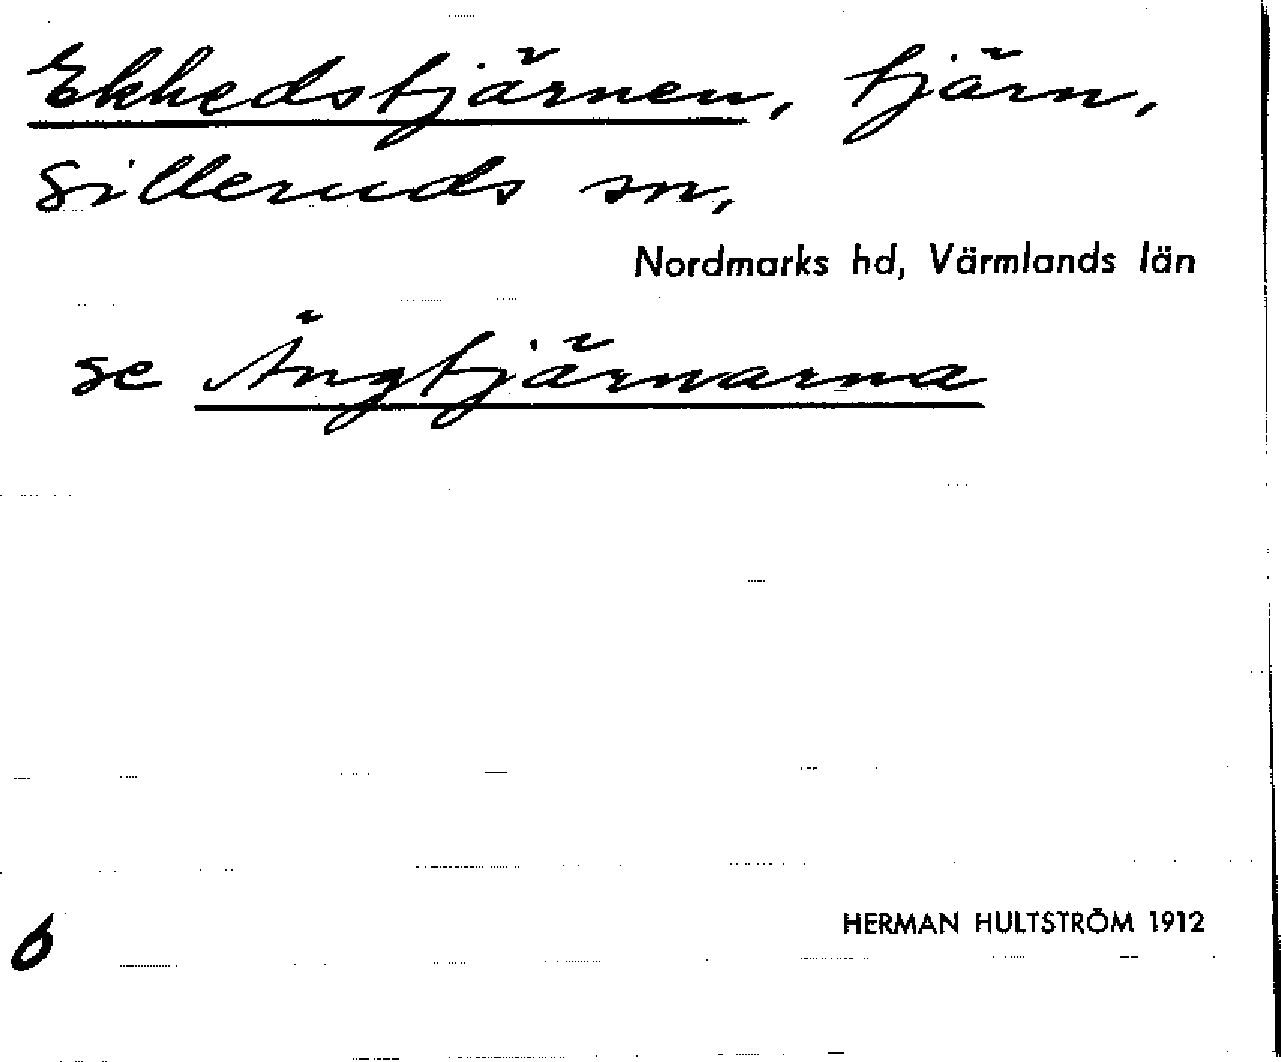 Ekhedstjärnen, tjärn,
Silleruds sn,
Nordmarks hd, Värmlands län
se Ängtjärnarna
HERMAN HULTSTRÖM 1912
6